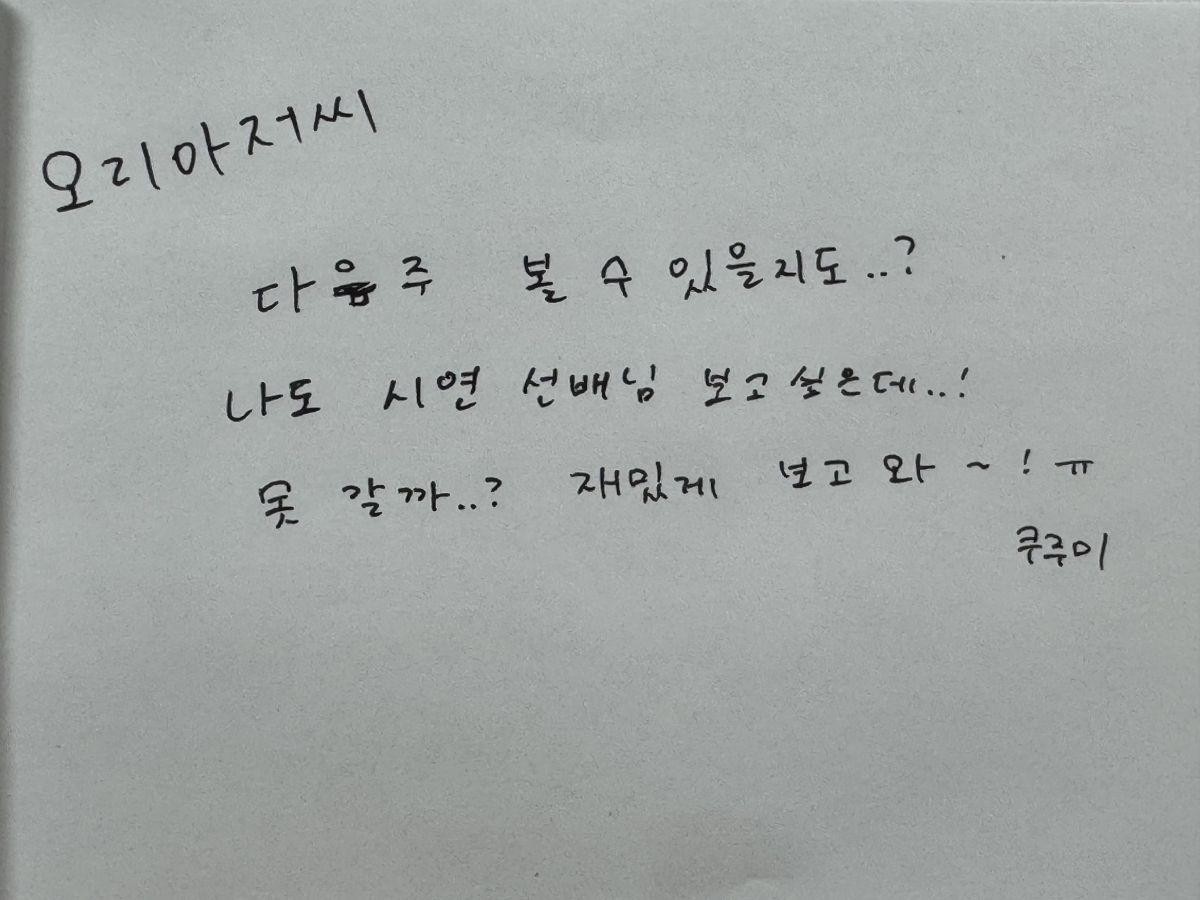 오리아저씨
다음주 볼 수 있을지도..?
나도 시연 선배님 보고싶은데..!
못 갈까..? 재밌게 보고 와 ~ ! ㅠ
쿠주미